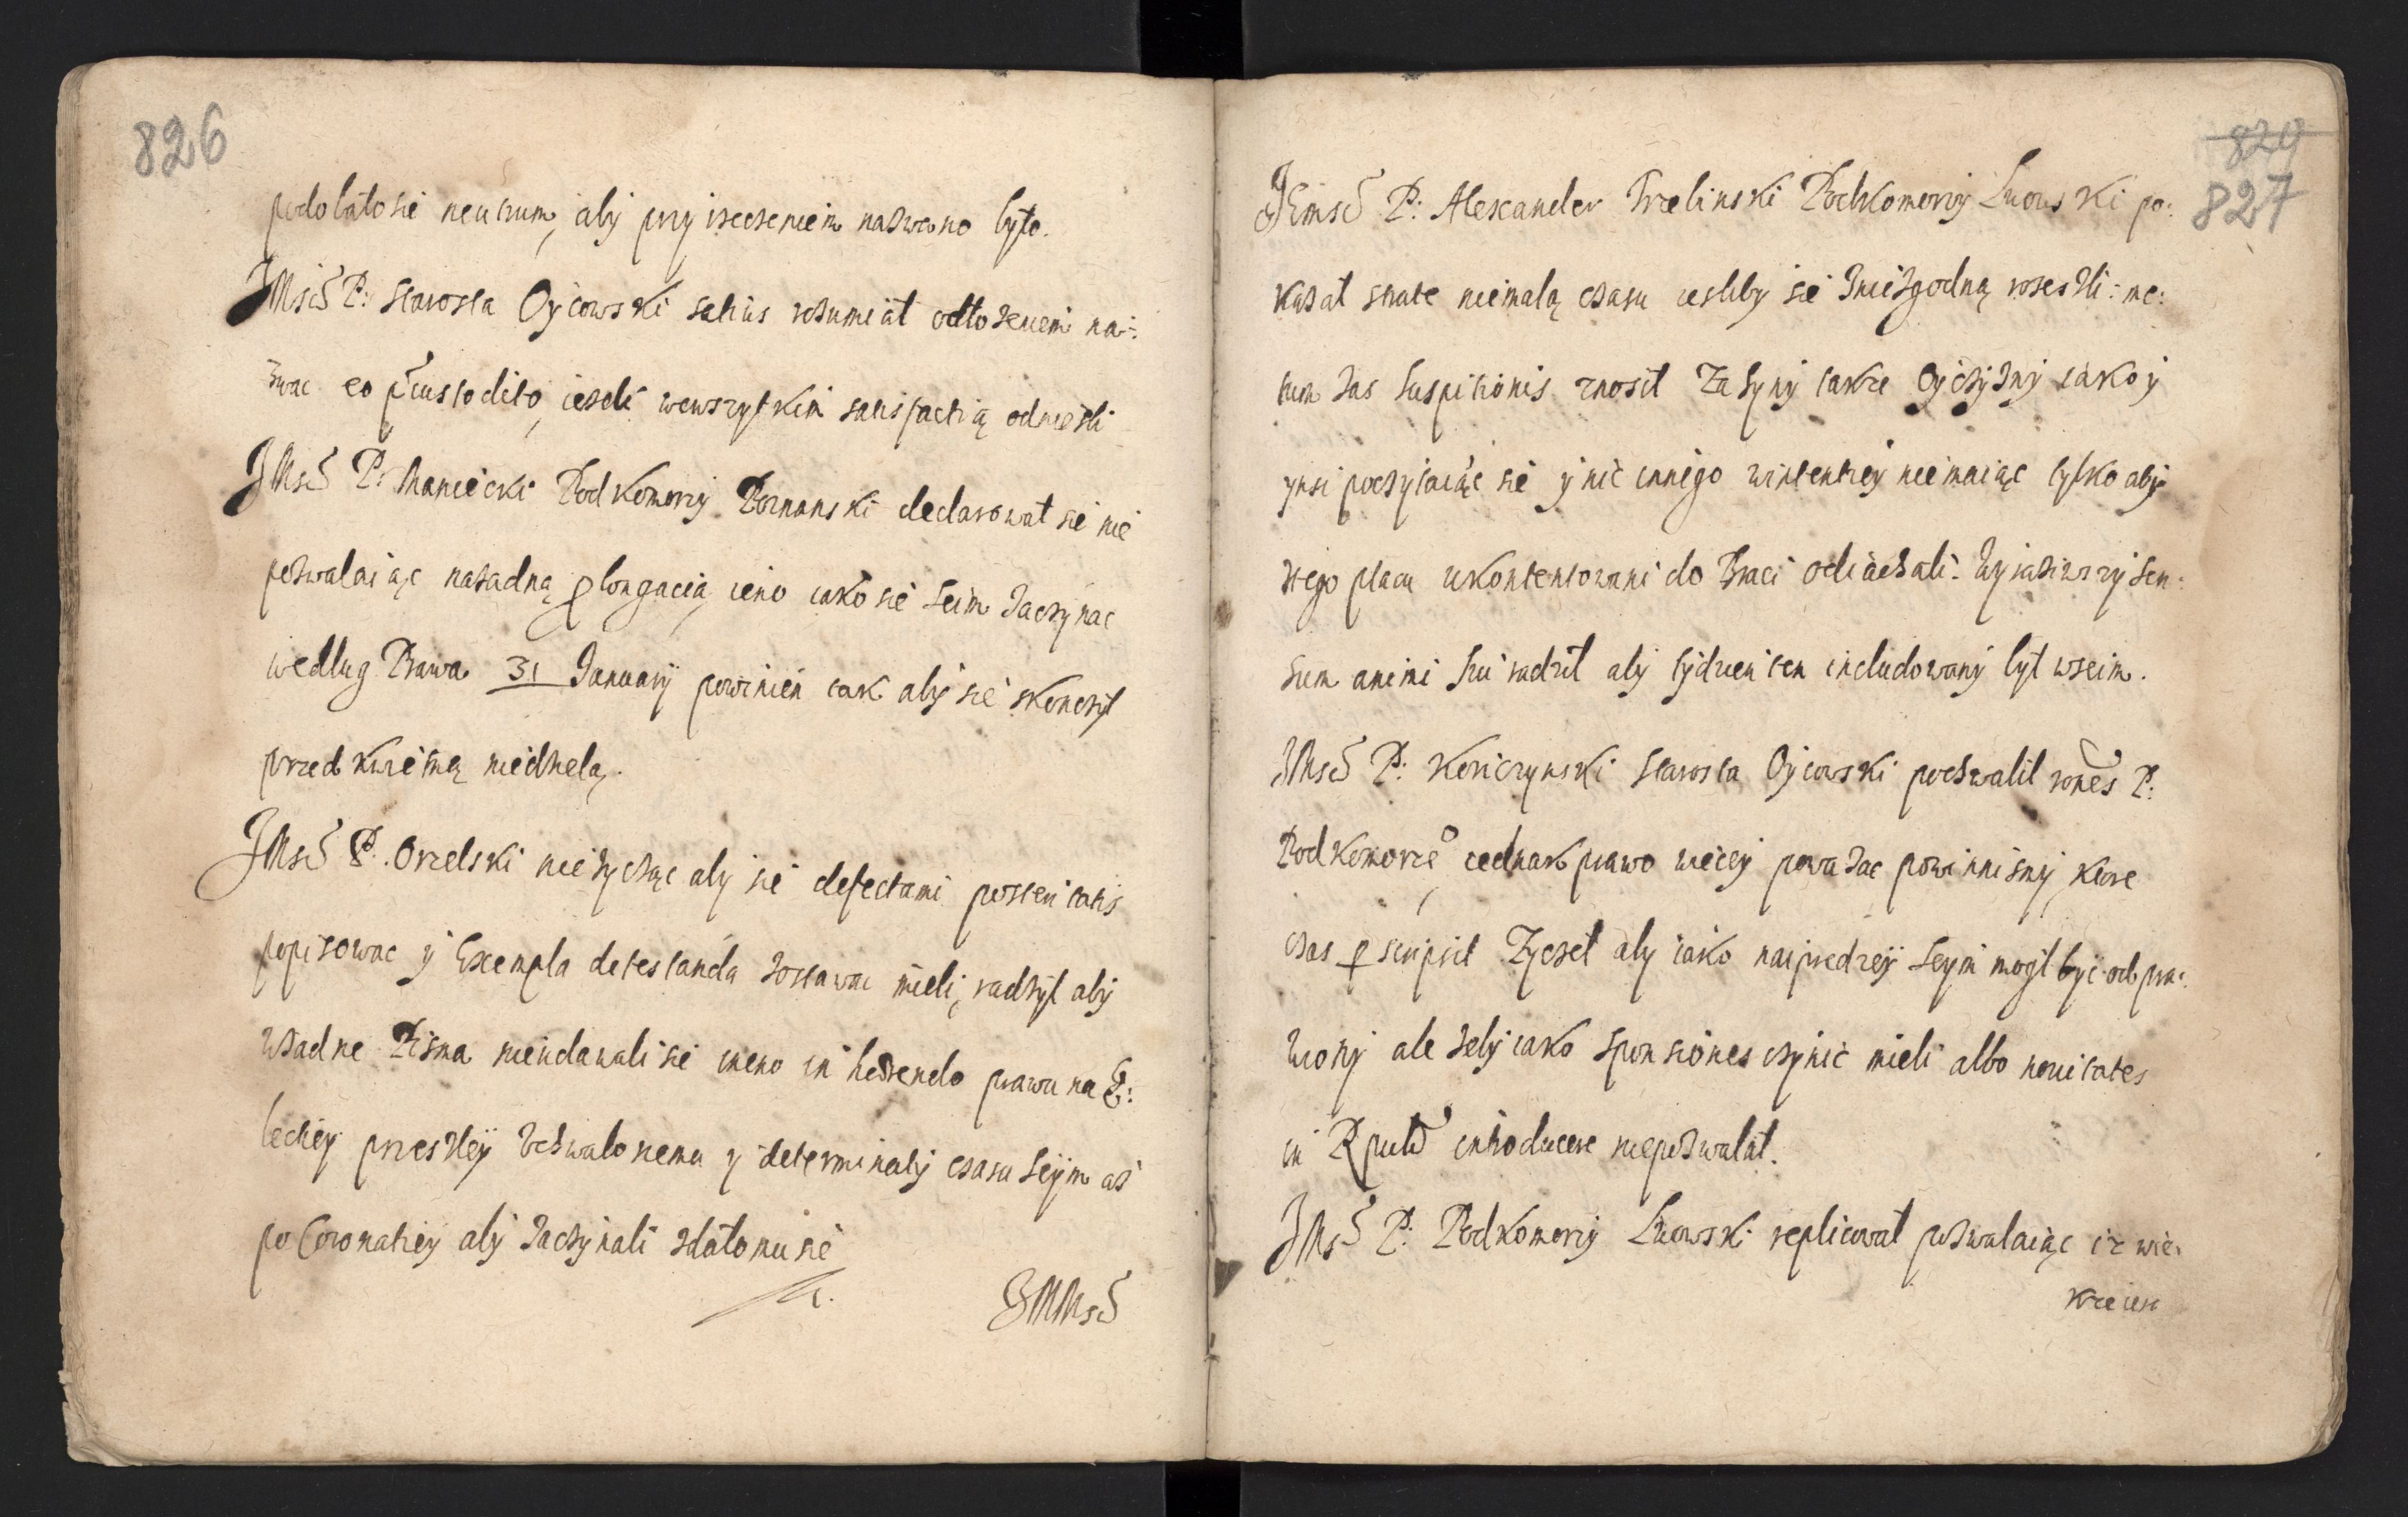 826
podobało sie neutrum, aby przyrzeczeniem nazwano było.
JMsć P: Starosta Oycowski satius rozumiał odłozeniem na:
zwac eo pcustodito, iezeli wewszytkim satisfactią odniesli
JMsć P: Maniecki Podkomorzy Poznanski declarował sie nie
pozwalaiąc nazadną plongacią ieno iako sie Seim Zaczynac
według Prawa 31 January powinien tak aby sie skonczył
przed kwietną niedzielą.
JMsć P. Orzelski nieżycząc aby sie defectami posteritatis
popisowac y Exempla detestanda zostawac mieli, radzył aby
wzadne Pisma niewdawali sie ieno in haerendo prawu na E:
lectiey przeszłey Uchwalonemu y determinaty czasu Seym asz
po Coronatiey aby Zaczynali zdało mu sie
JMMsć
829
827
JEmsć P: Alexander Trzebinski Podkomorzy Lwowski po:
kazał strate niemałą czasu iesliby sie Zniezgodną rozeszli: me:
tum zas Suspitionis znosił Za Syny takze Oyczyzny iako y
ynsi poczytaiąc sie y nic innego wintentiey niemaiąc tylko aby
ztego placu ukontentowani do Braci odiachali. Wyraziwszy sen:
sum animi sui radził aby tydzien ten includowany był wseim.
JMsć P: Koryczynski Starosta Oycowski pochwalił rones P:
Podkomorzego, iednak prawo wiecey powazac powinnismy ktore
czas pscripsit Zyczył aby iako naipredzey Seym mogł być odpra:
wiony ale zeby iako Sponsiones czynic mieli albo novitates
in Rputcā introducere niepozwalał.
JMsć P: Podkomorzy Lwowski replicował pozwalaiąc iz wie:
ksze iest